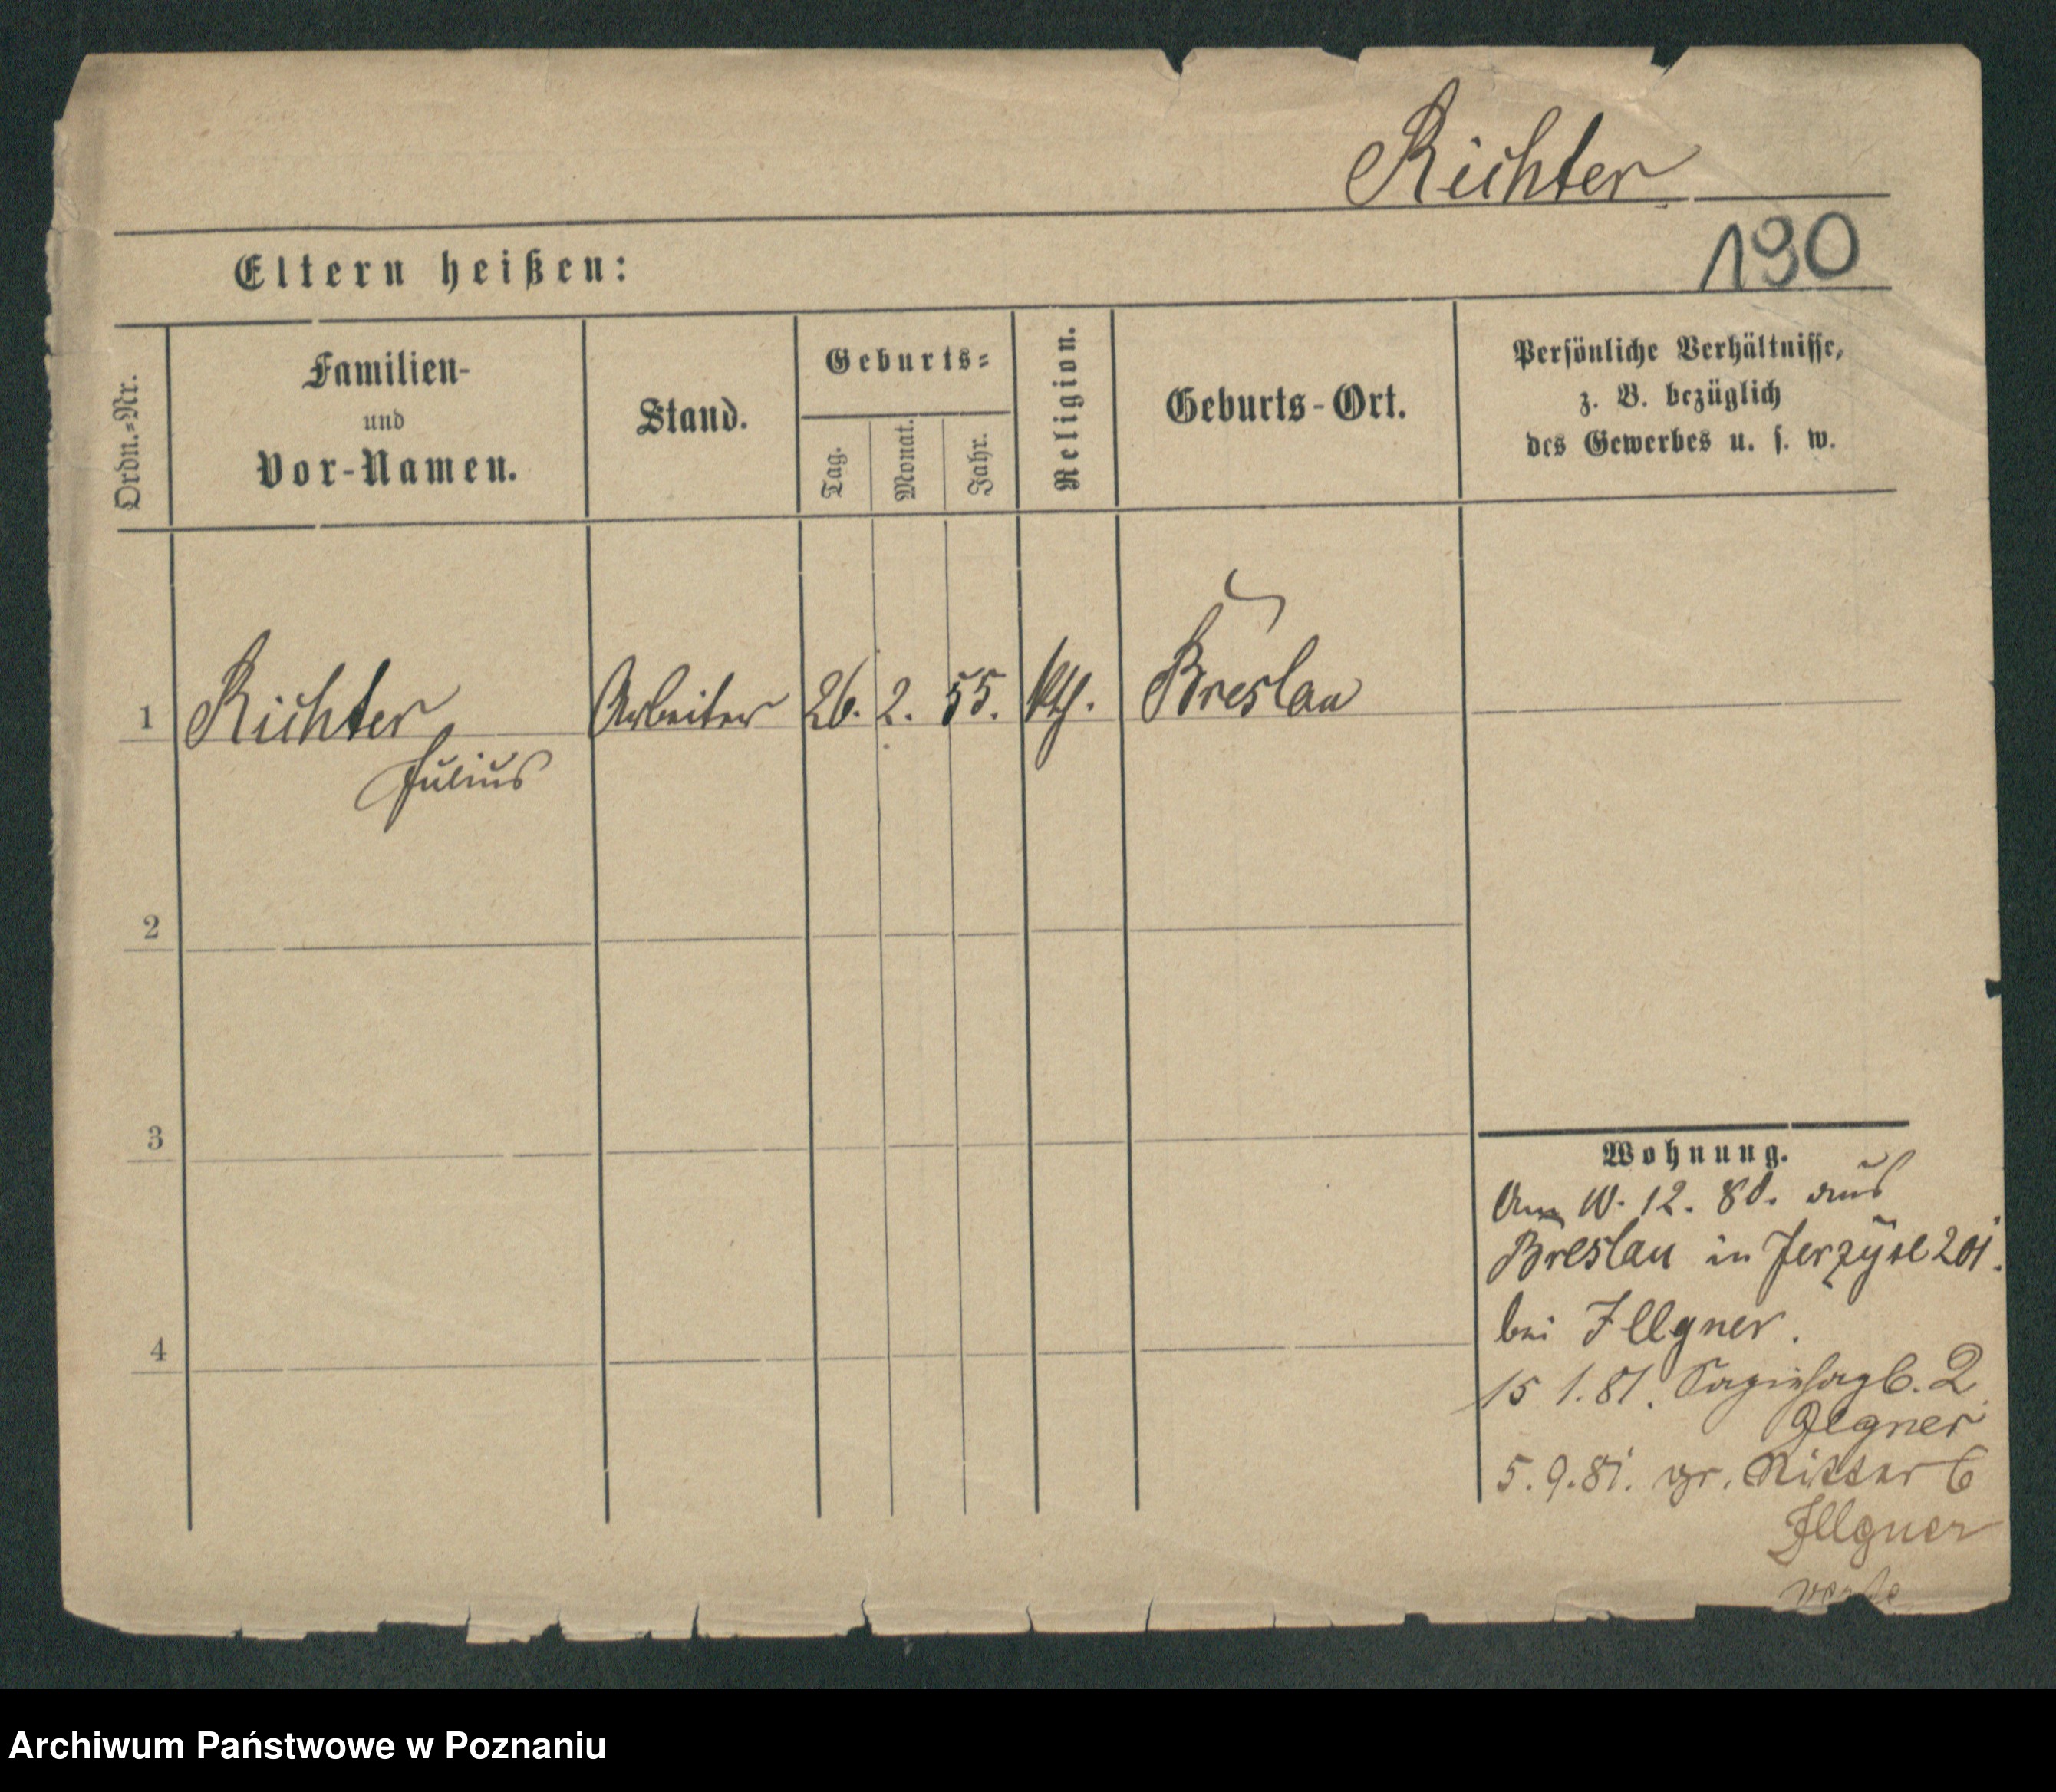 Richter
190
Eltern heißen:
Ordn.=Nr.
Familien-
und
Vor-Namen.
Stand.
Geburts=
Tag.
Monat.
Jahr.
Religion.
Geburts-Ort.
Persönliche Verhältnisse,
z. B. bezüglich
des Gewerbes u. s. w.
1 Richter Arbeiter 26. 2. 55. kth. Breslau
Julius
2
3
4
Wohnung.
Am 10. 12. 80. aus
Breslau in Jerzyce 201.
bei Illgner.
15 1.81. 2
Ilgner
5.9.81. gr. Ritter 6
Illgner
Archiwum Państwowe w Poznaniu